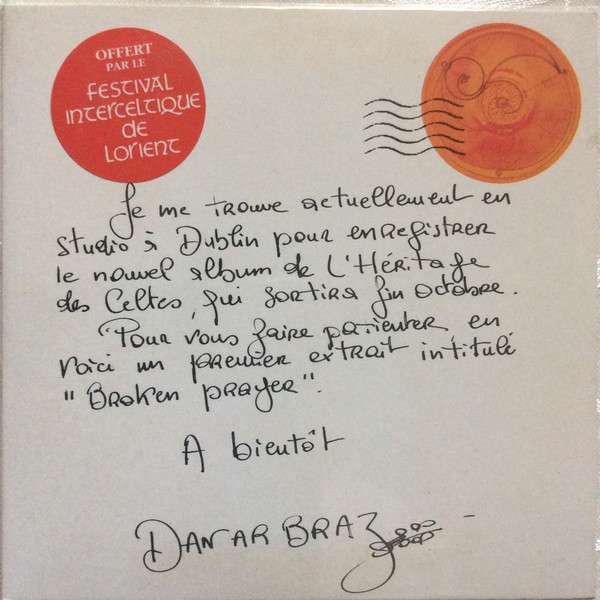 OFFERT
PAR LE
FESTIVAL
INTERCELTIQUE
de
LORIENT
Je me trouve actuellement en
studio à Dublin pour enregistrer
le nouvel album de L'Héritage
des Celtes, qui sortira fin octobre.
Pour vous faire patienter en
voici un premier extrait intitulé
"Broken prayer".
A bientôt
DAN AR BRAZ